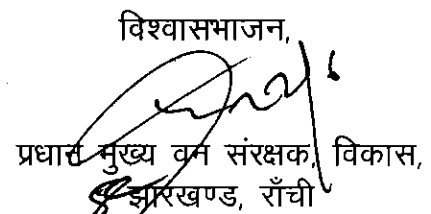 विश्वासभाजन,
प्रधान मुख्य वन संरक्षक, विकास,
झारखण्ड, राँची